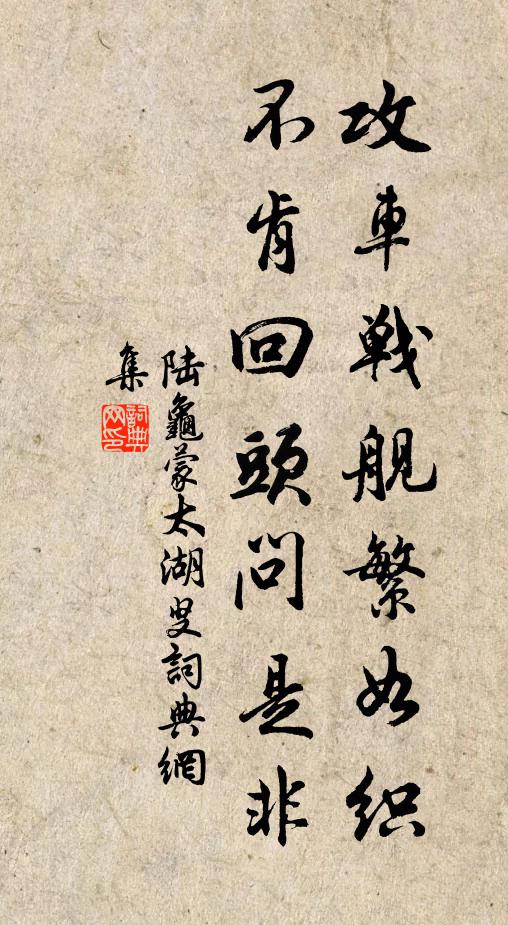 攻車戰舰繁如织
不肯回頭問是非
陆龜蒙太湖叟詞典網
集
詞典网印